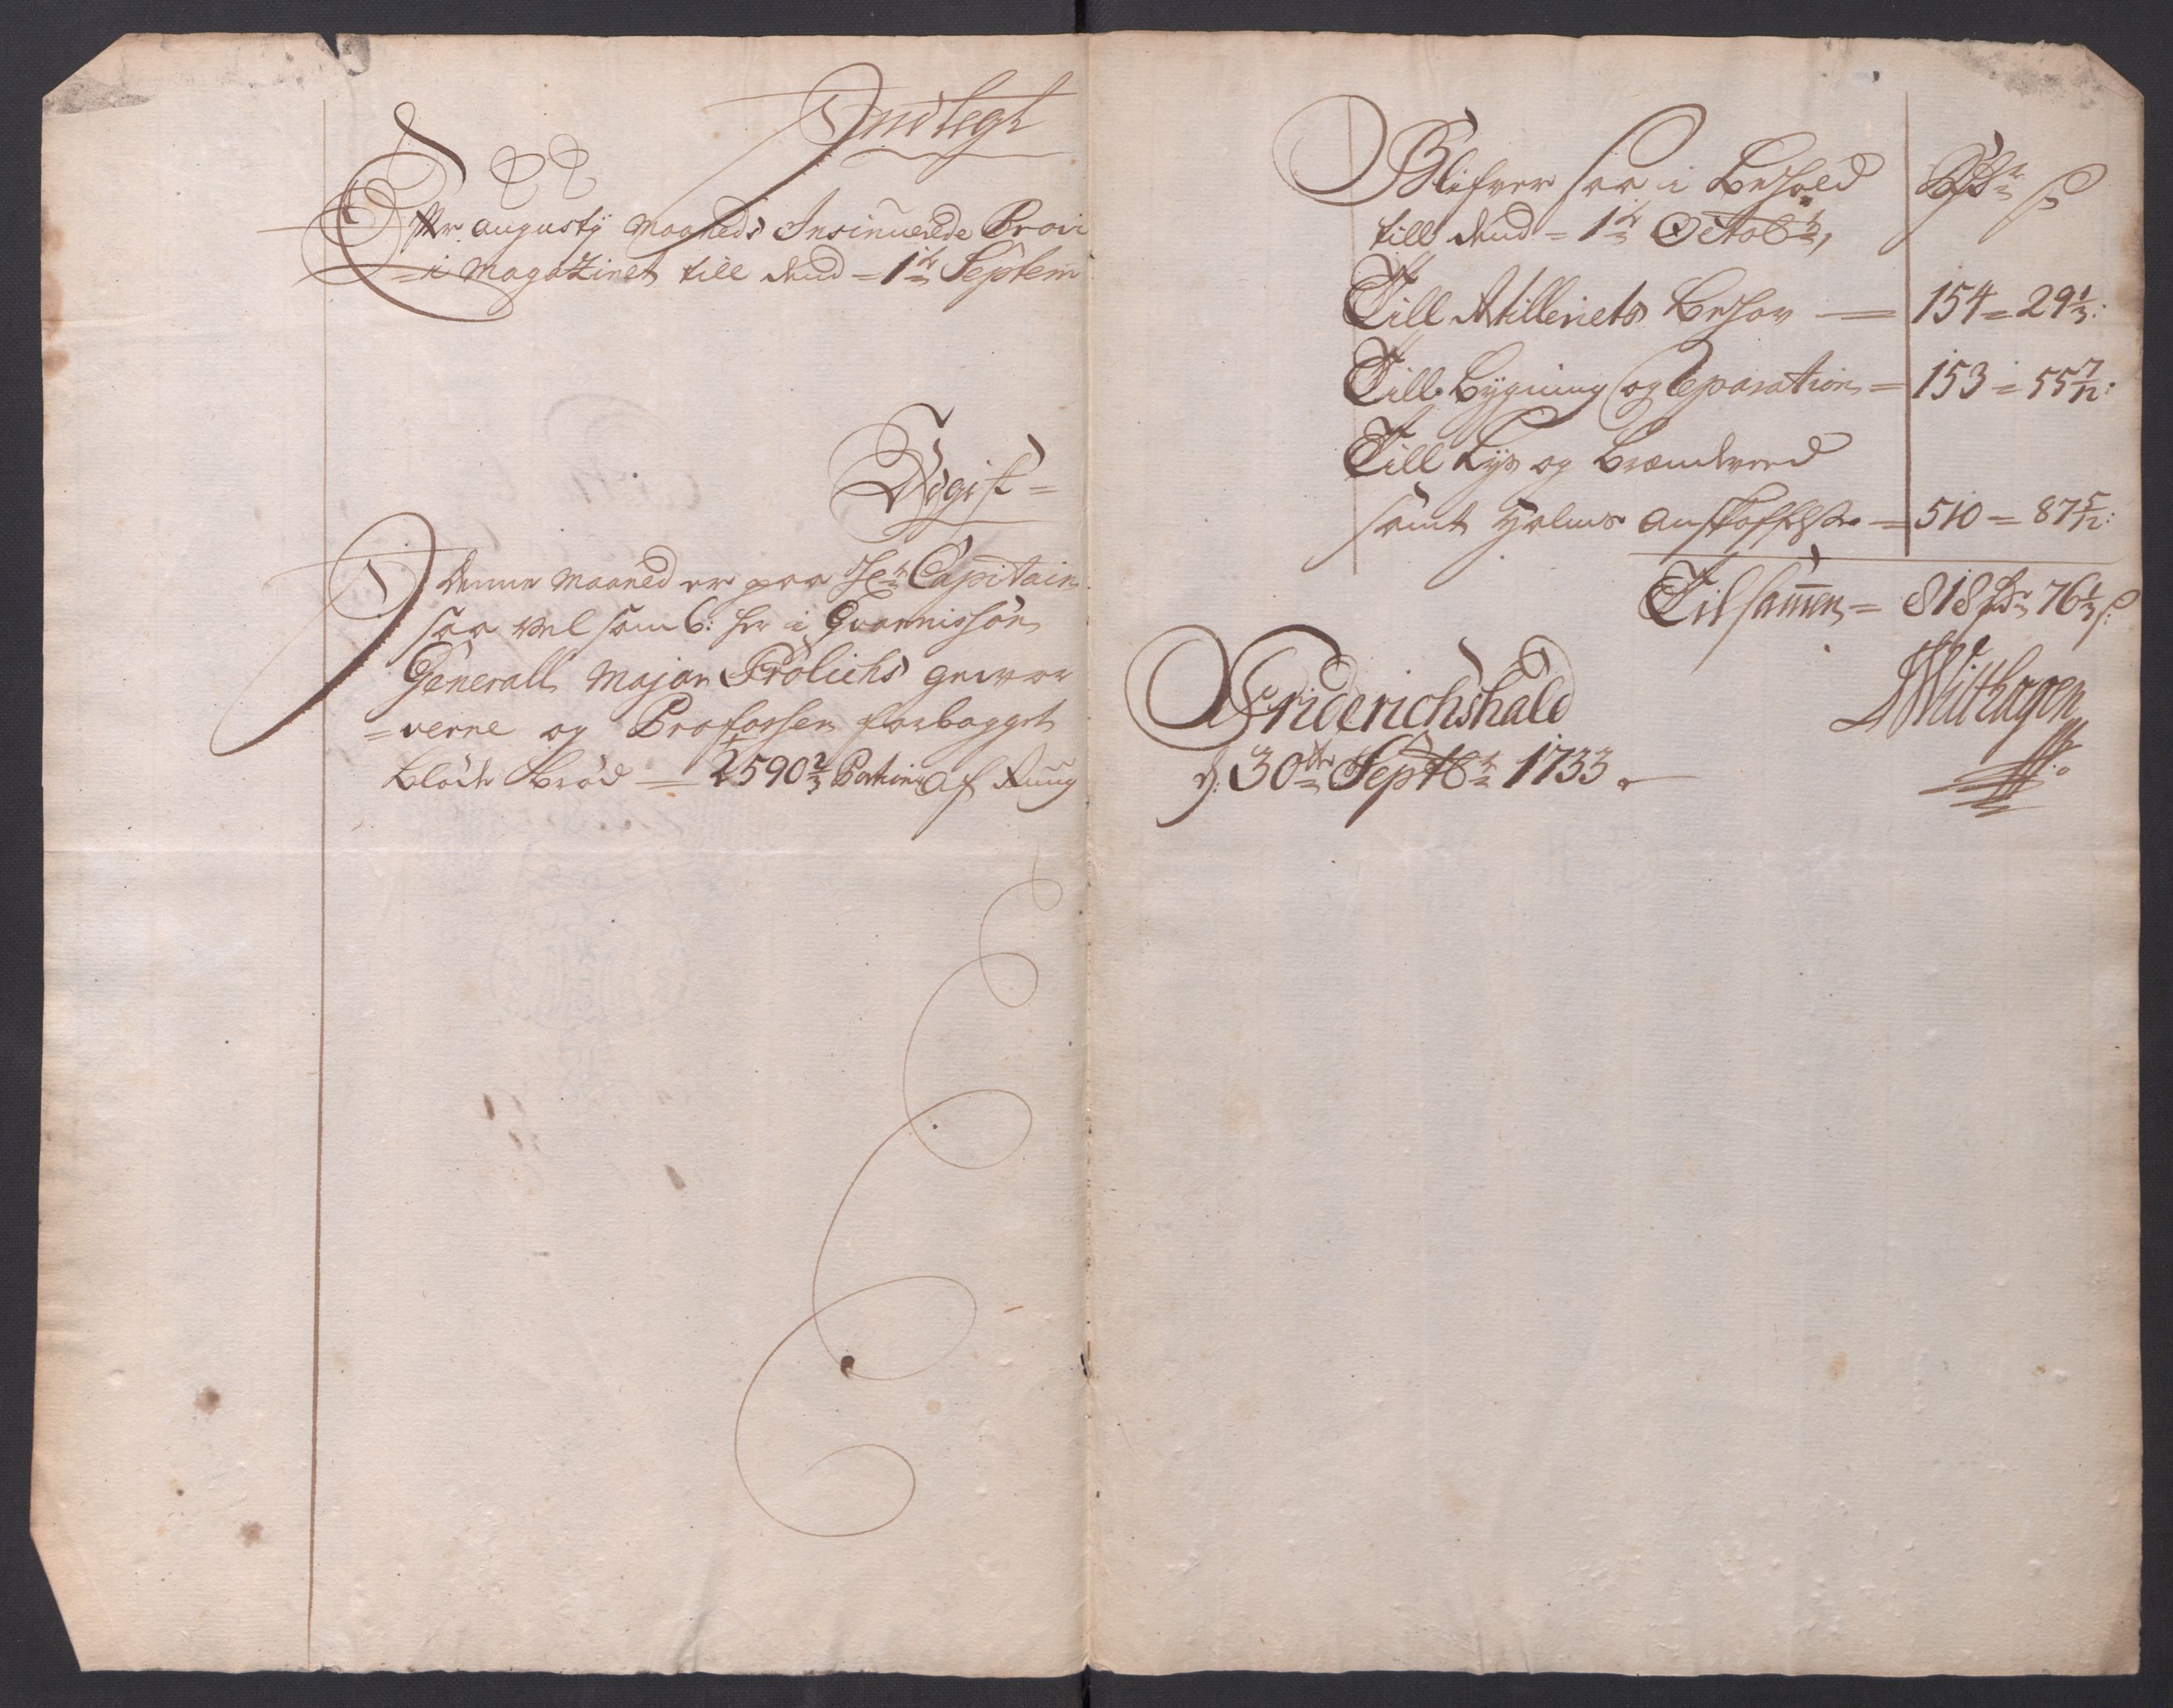 Indtegt
Effter Augusty Maaneds Insinuerede Provi
=i Magazinet till dend = 1te Septem
Udgift =
I denne Maaned er paa Hr Capitain
saa vel som 6: her i Guarnisson
Generall Major Frölichs gewor
=verne og Profossen forbagget
blödt Bröd = 2590 2/3 Portioner af Ruug
Blifver saa i Behold Rdr ß
till dend = 1te Octobr,
Till Atilleriets Behov = 154 = 29 1/3:
Till Bygning og Reparation = 153 = 55 7/12:
Till Lys og Brændeveed
samt Halms Anskaffelse = 510 = 87 5/12:
Tilsamen = 818 Rdr 76 1/3 ß:
Friderichshald
d: 30te Septbr 1733.